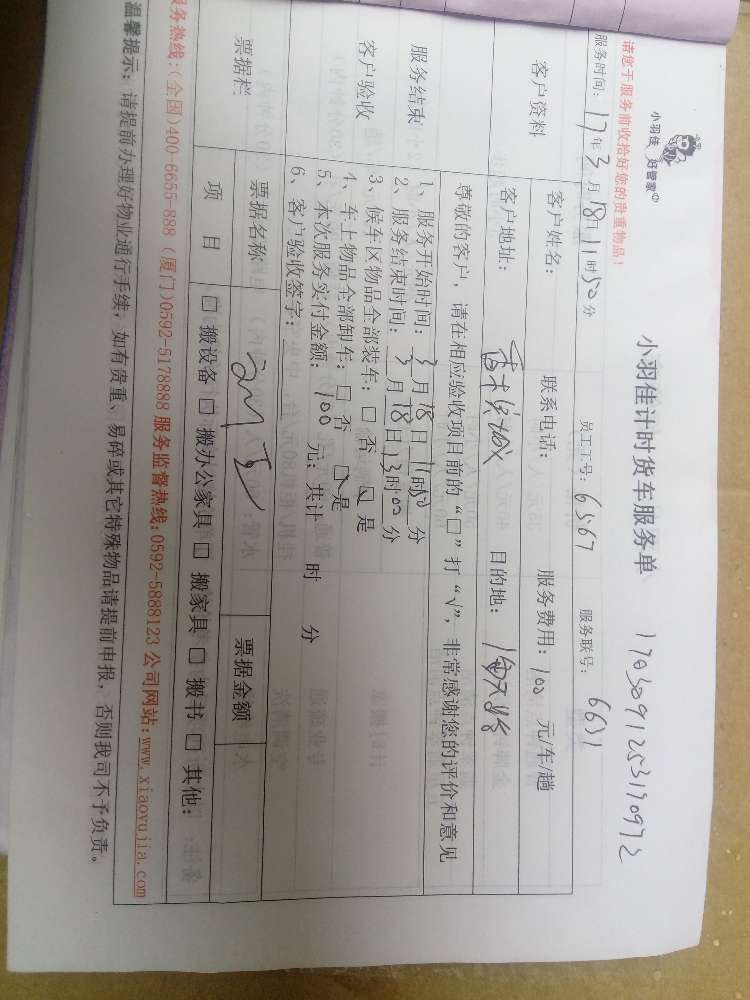 小羽佳 好管家
小羽佳计时货车服务单 1703091253170972
请您于服务前收拾好您的贵重物品！
服务时间：17年3月18日11时50分 员工工号：6567 服务联号：6631
客户资料 客户姓名： 联系电话： 服务费用：100 元/车/趟
客户地址： 目的地：
服务结束 客户验收
尊敬的客户，请在相应验收项目前的“□”打“√”，非常感谢您的评价和意见
1、服务开始时间：3月18日11时50分
2、服务结束时间：3月18日13时00分
3、候车区物品全部装车：□ 否 ☑ 是
4、车上物品全部卸车：□ 否 ☑ 是
5、本次服务实付金额：100元；共计 时 分
6、客户验收签字：
票据栏 票据名称 票据金额
项 目 □ 搬设备 □ 搬办公家具 □ 搬家具 □ 搬书 □ 其他：
服务热线：(全国)400-6655-888 (厦门)0592-5178888 服务监督热线：0592-5888123 公司网站：www.xiaoyujia.com
温馨提示：请提前办理好物业通行手续，如有贵重、易碎或其它特殊物品请提前申报，否则我司不予负责。